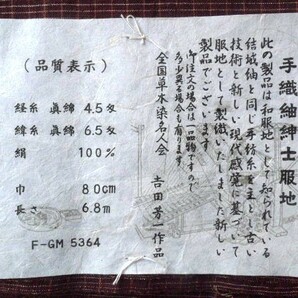 手織紬紳士服地
此の製品は和服地として知られている
結城紬と同じ手紡糸を主とし古い
技術と新しい現代感覚に基いて
服地として製織いたしました新しい
製品でございます
御注文の場合は一品物ですので
多少異る場合も有ります
全国草木染名人会
吉田芳一作品
(品質表示)
経糸 真綿 4.5匁
緯糸 真綿 6.5匁
絹 100%
巾 80cm
長さ 6.8m
F-GM 5364